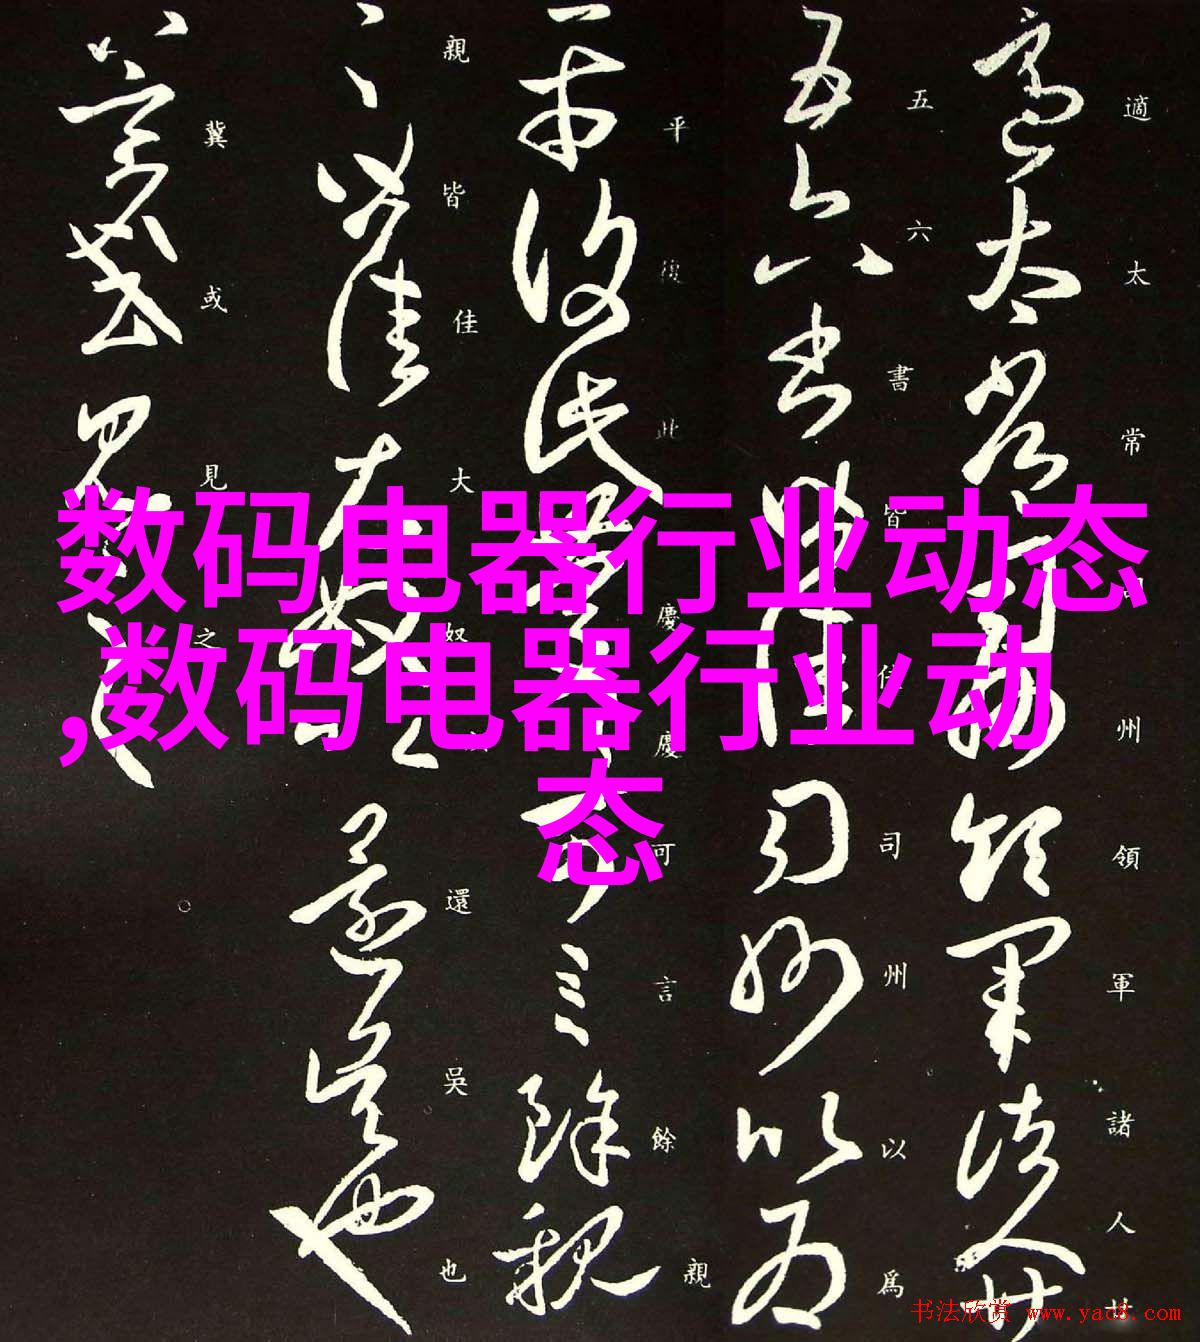 適太常司州領軍諸人廿
五六書皆佳司州以為
平復此慶慶可言餘親
親皆佳大奴還吳也
冀或見之
数码电器行业动态
,数码电器行业动
态
书法欣赏 www.yac8.com